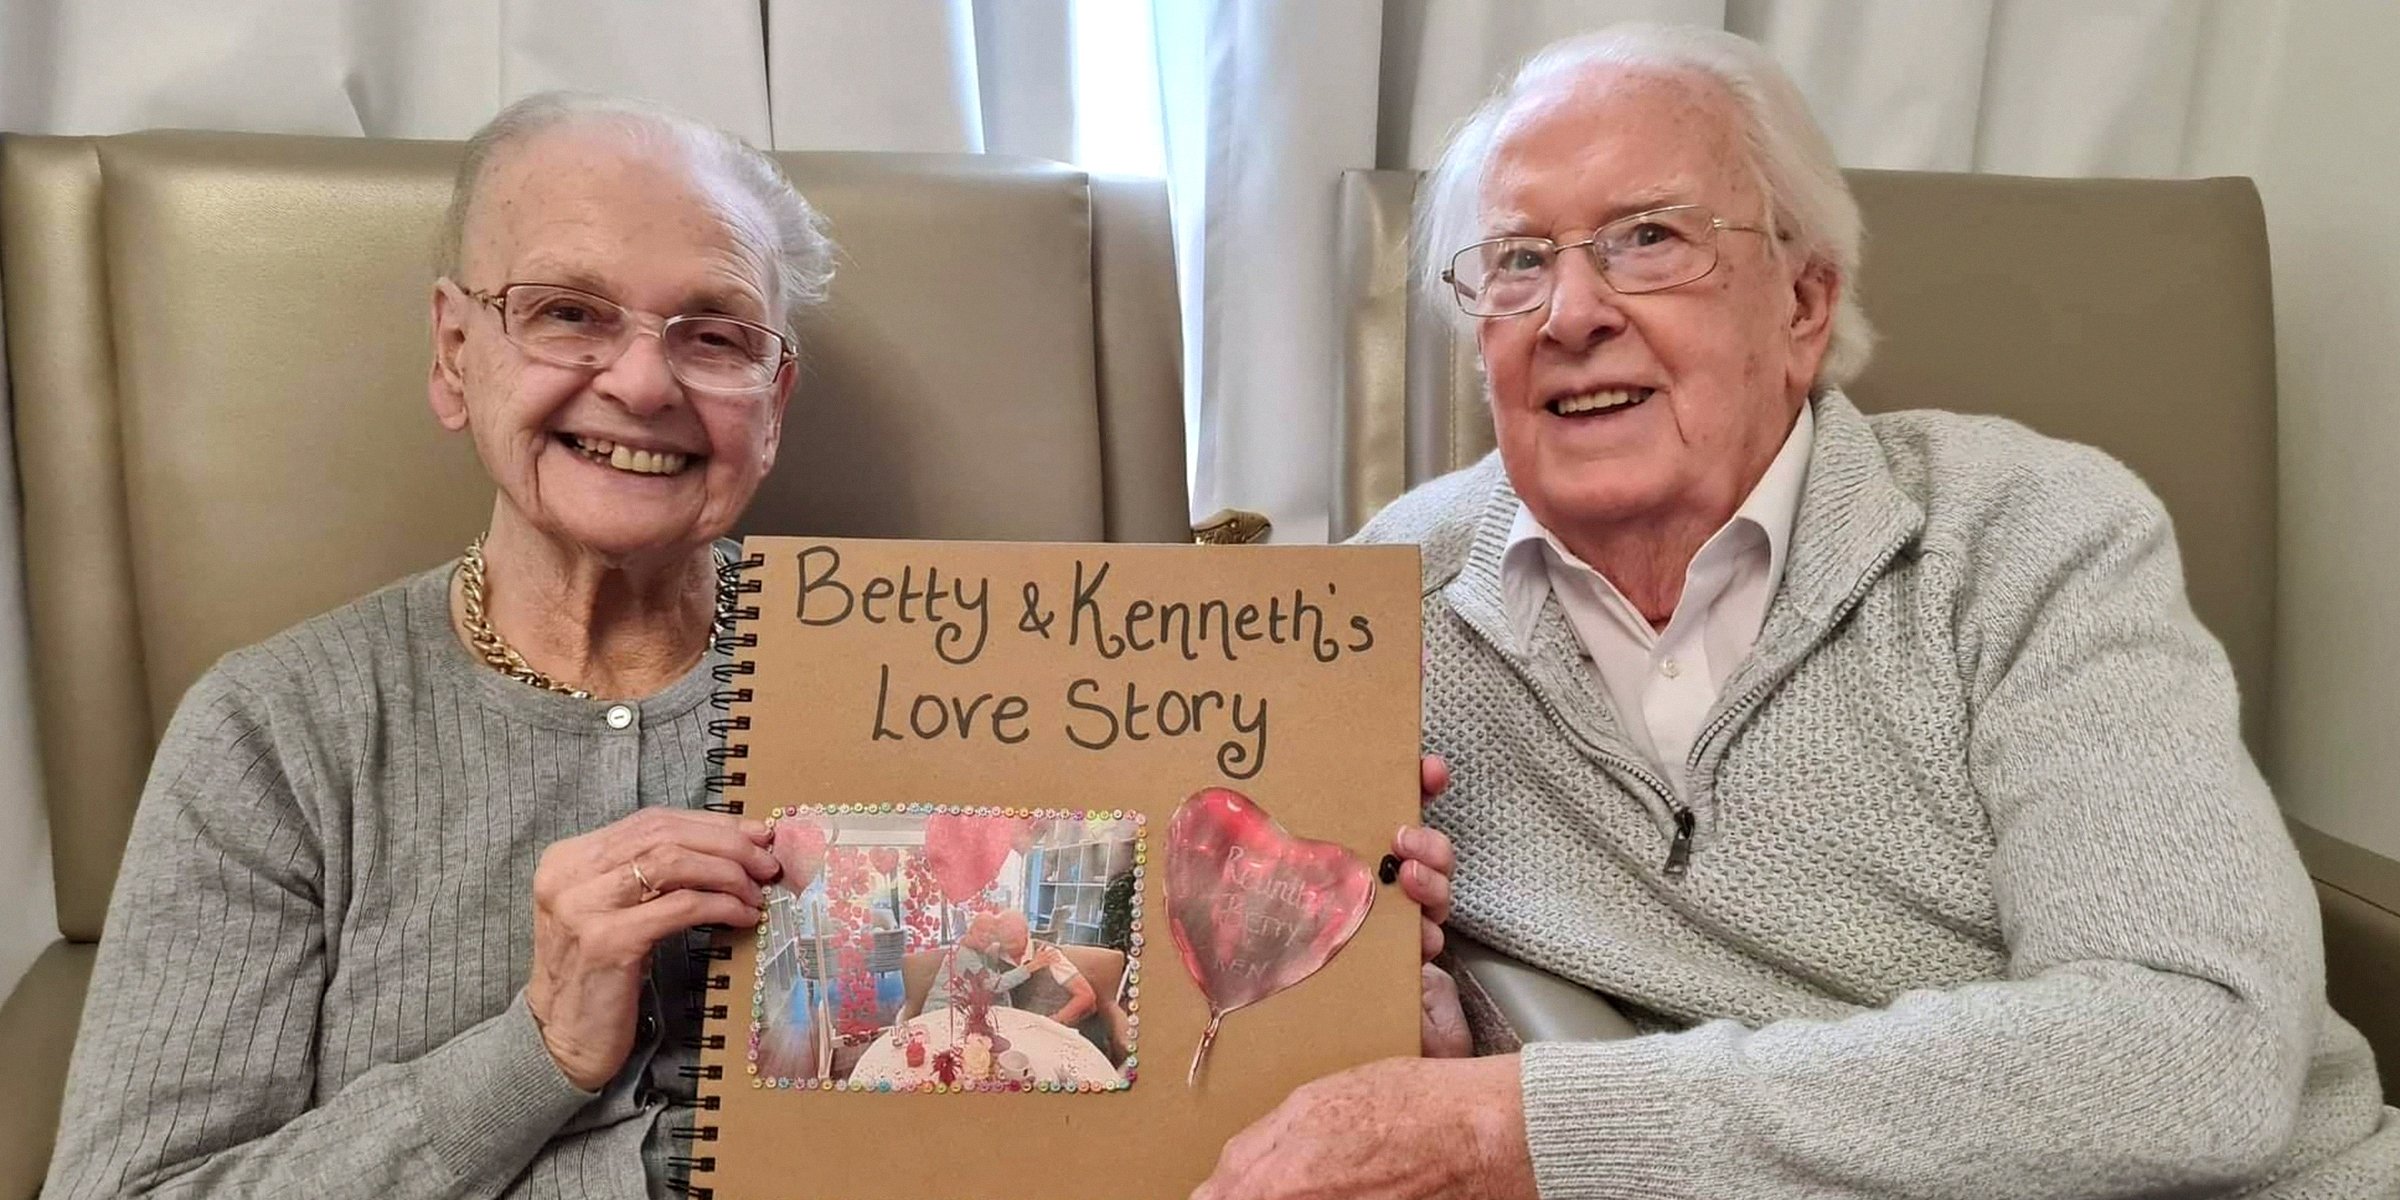 Betty & Kenneth's
Love Story
Reuniting
Betty
Ken